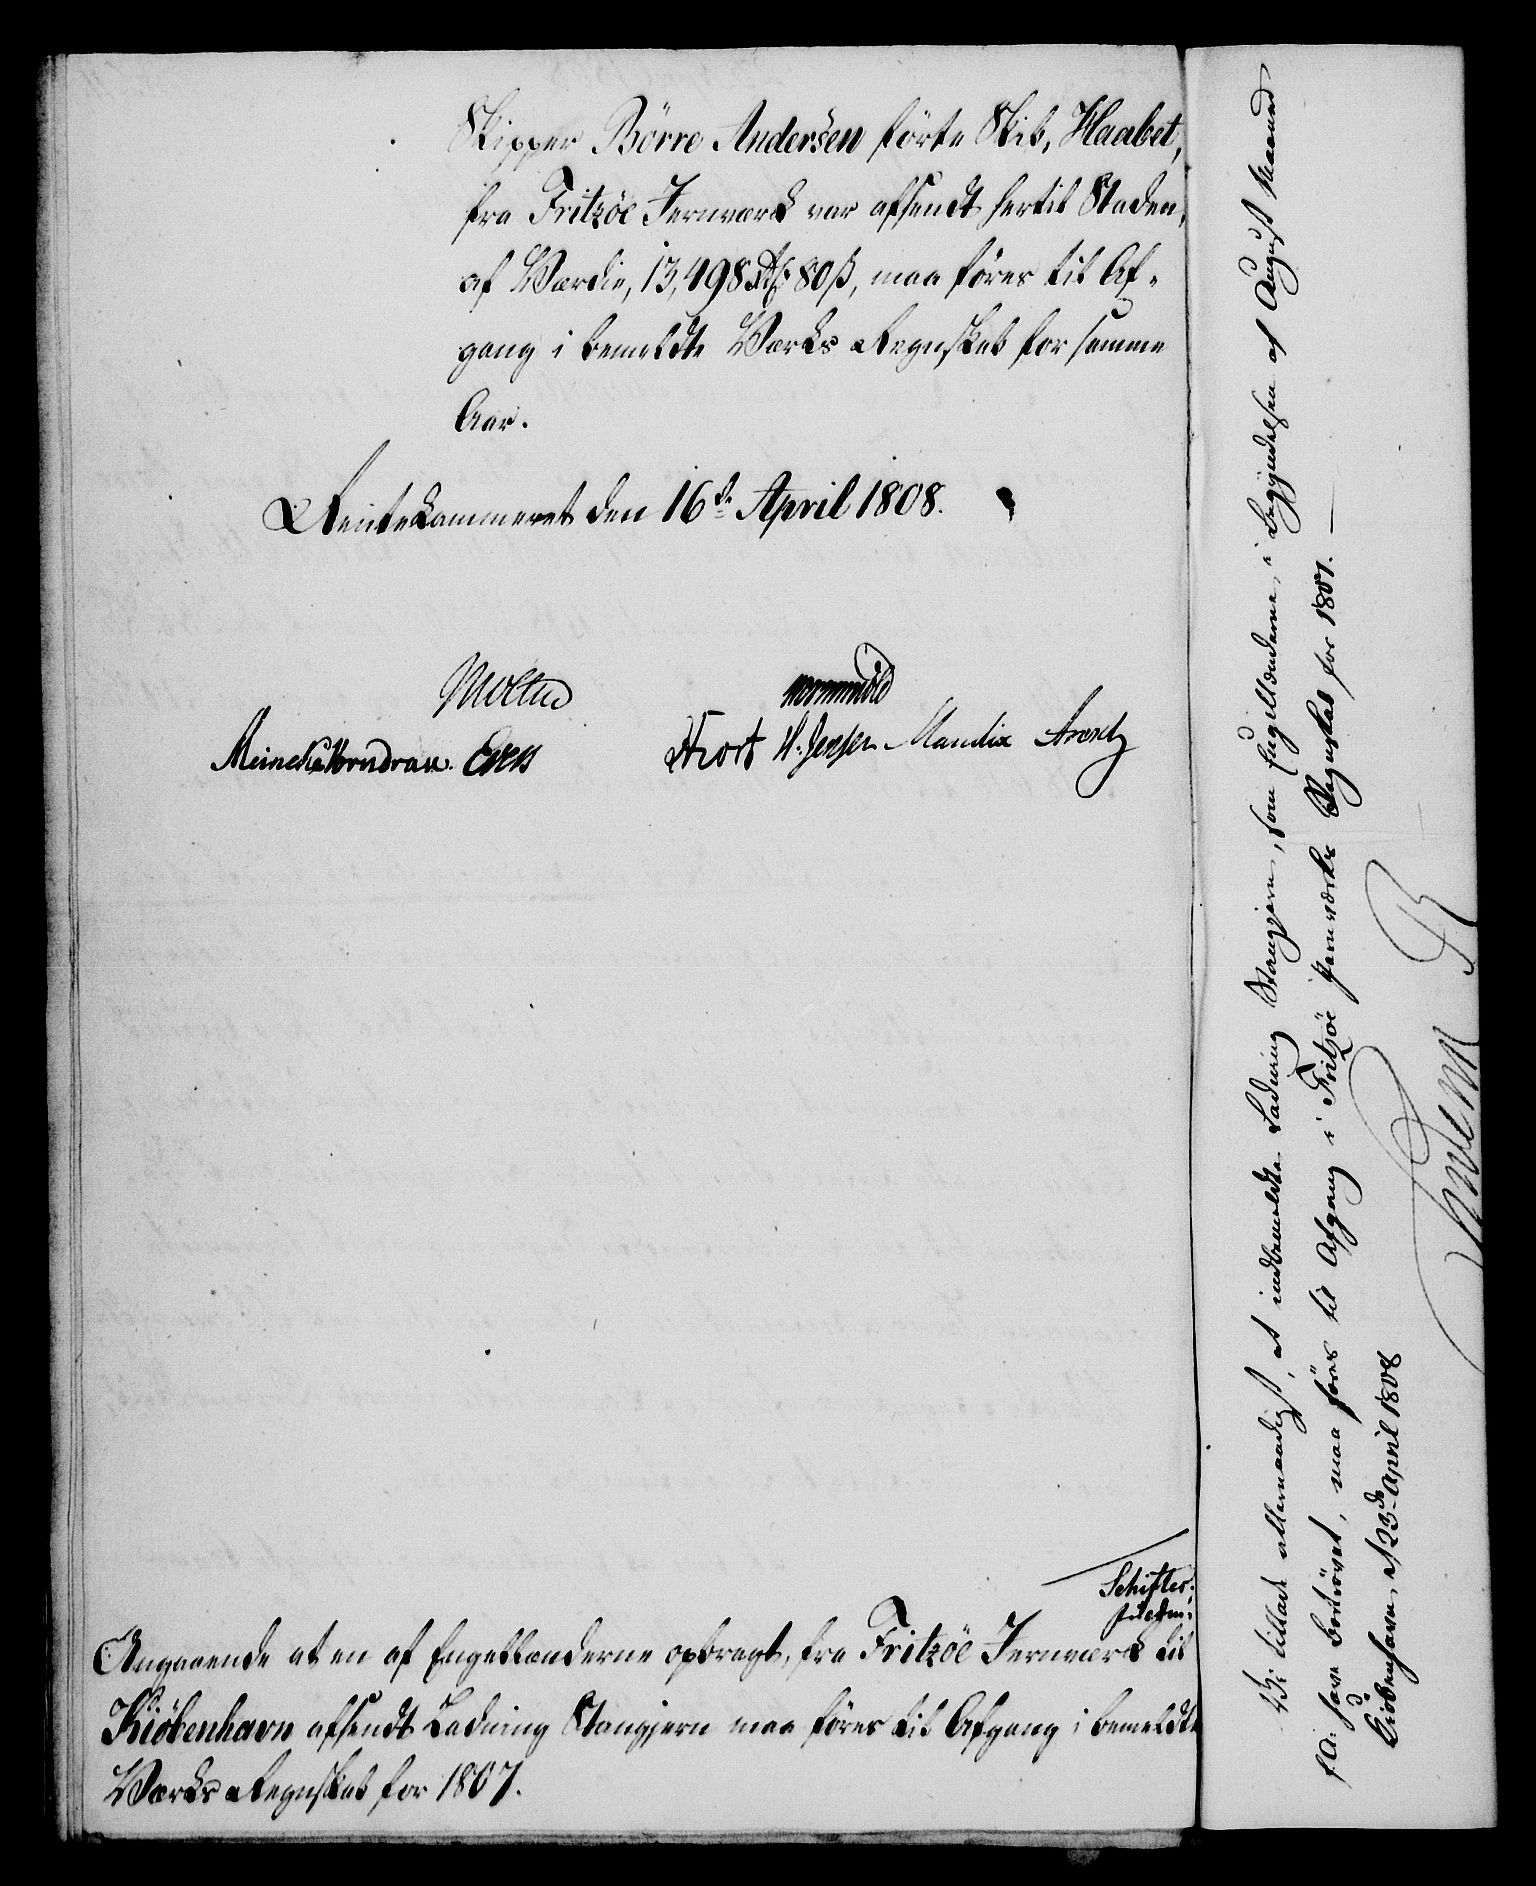 Skipper Börre Andersen förte Skib, Haabet,
fra Fritzöe Jernværk var afsendt hertil Staden,
af Værdie, 13,498 Rd 80 ß, maa föres til Af-
gang i bemeldte Værks Regnskab for samme
Aar.
Rentekammeret den 16de April 1808.
Moltke Wormskiold
Meincke Vorndran. Evers Hiort H. Jensen Mandix Arentz
Schifter.
Angaaende at en af Engellænderne opbragt, fra Fritzöe Jernværk til
Kiöbenhavn afsendt Ladning Stangjern maa föres til Afgang i bemeldte
Værks Regnskab for 1807.
Vi tillade allernaadigst, at indbemeldte Ladning Stangjern, som Engellænderne, i Begyndelsen af August Maaned
f. A: have berövet, maa föres til Afgang i Fritzöe Jernværks Regnskab for 1807. —
Kiöbenhavn, d 23de April 1808
Frederik R